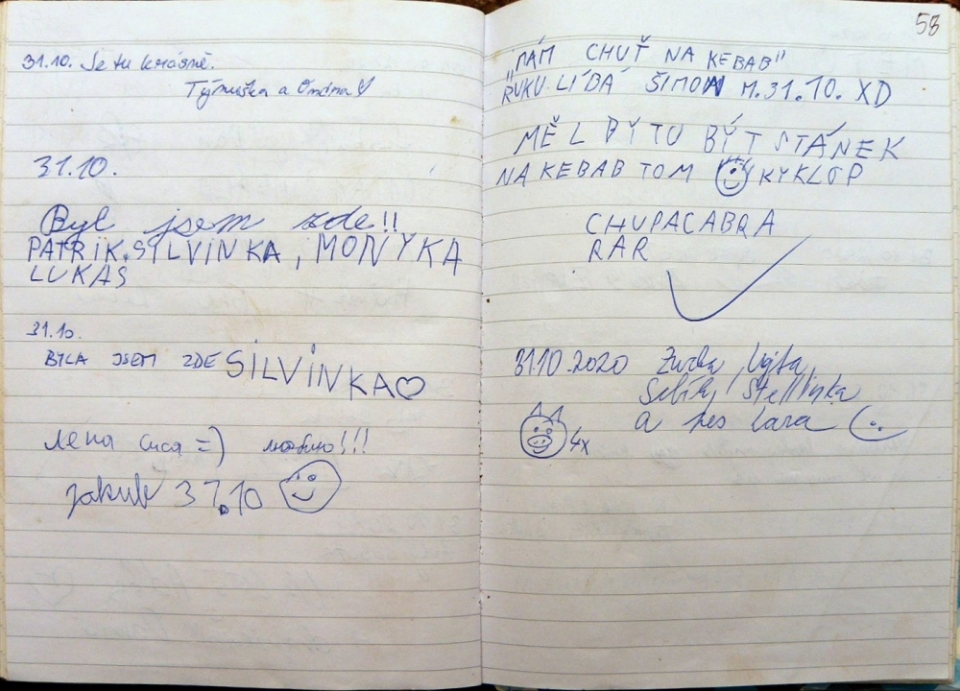 31.10. Je tu krásně.
Týnuška a
31.10.
Byl jsem zde!!
PATRIK, SILVINKA, MONYKA
LUKAS
31.10.
BYLA JSEM ZDE SILVINKA
лена =) люблю!!!
Jakub 31.10
58
"MÁM CHUŤ NA KEBAB"
RUKU LÍBÁ ŠIMON M.31.10. XD
MĚL BÝ TU BÝT STÁNEK
NA KEBAB TOM KYKLOP
CHUPACABRA
RAR
31.10.2020 Vojta,
Stellinka
a pes Lara
4x